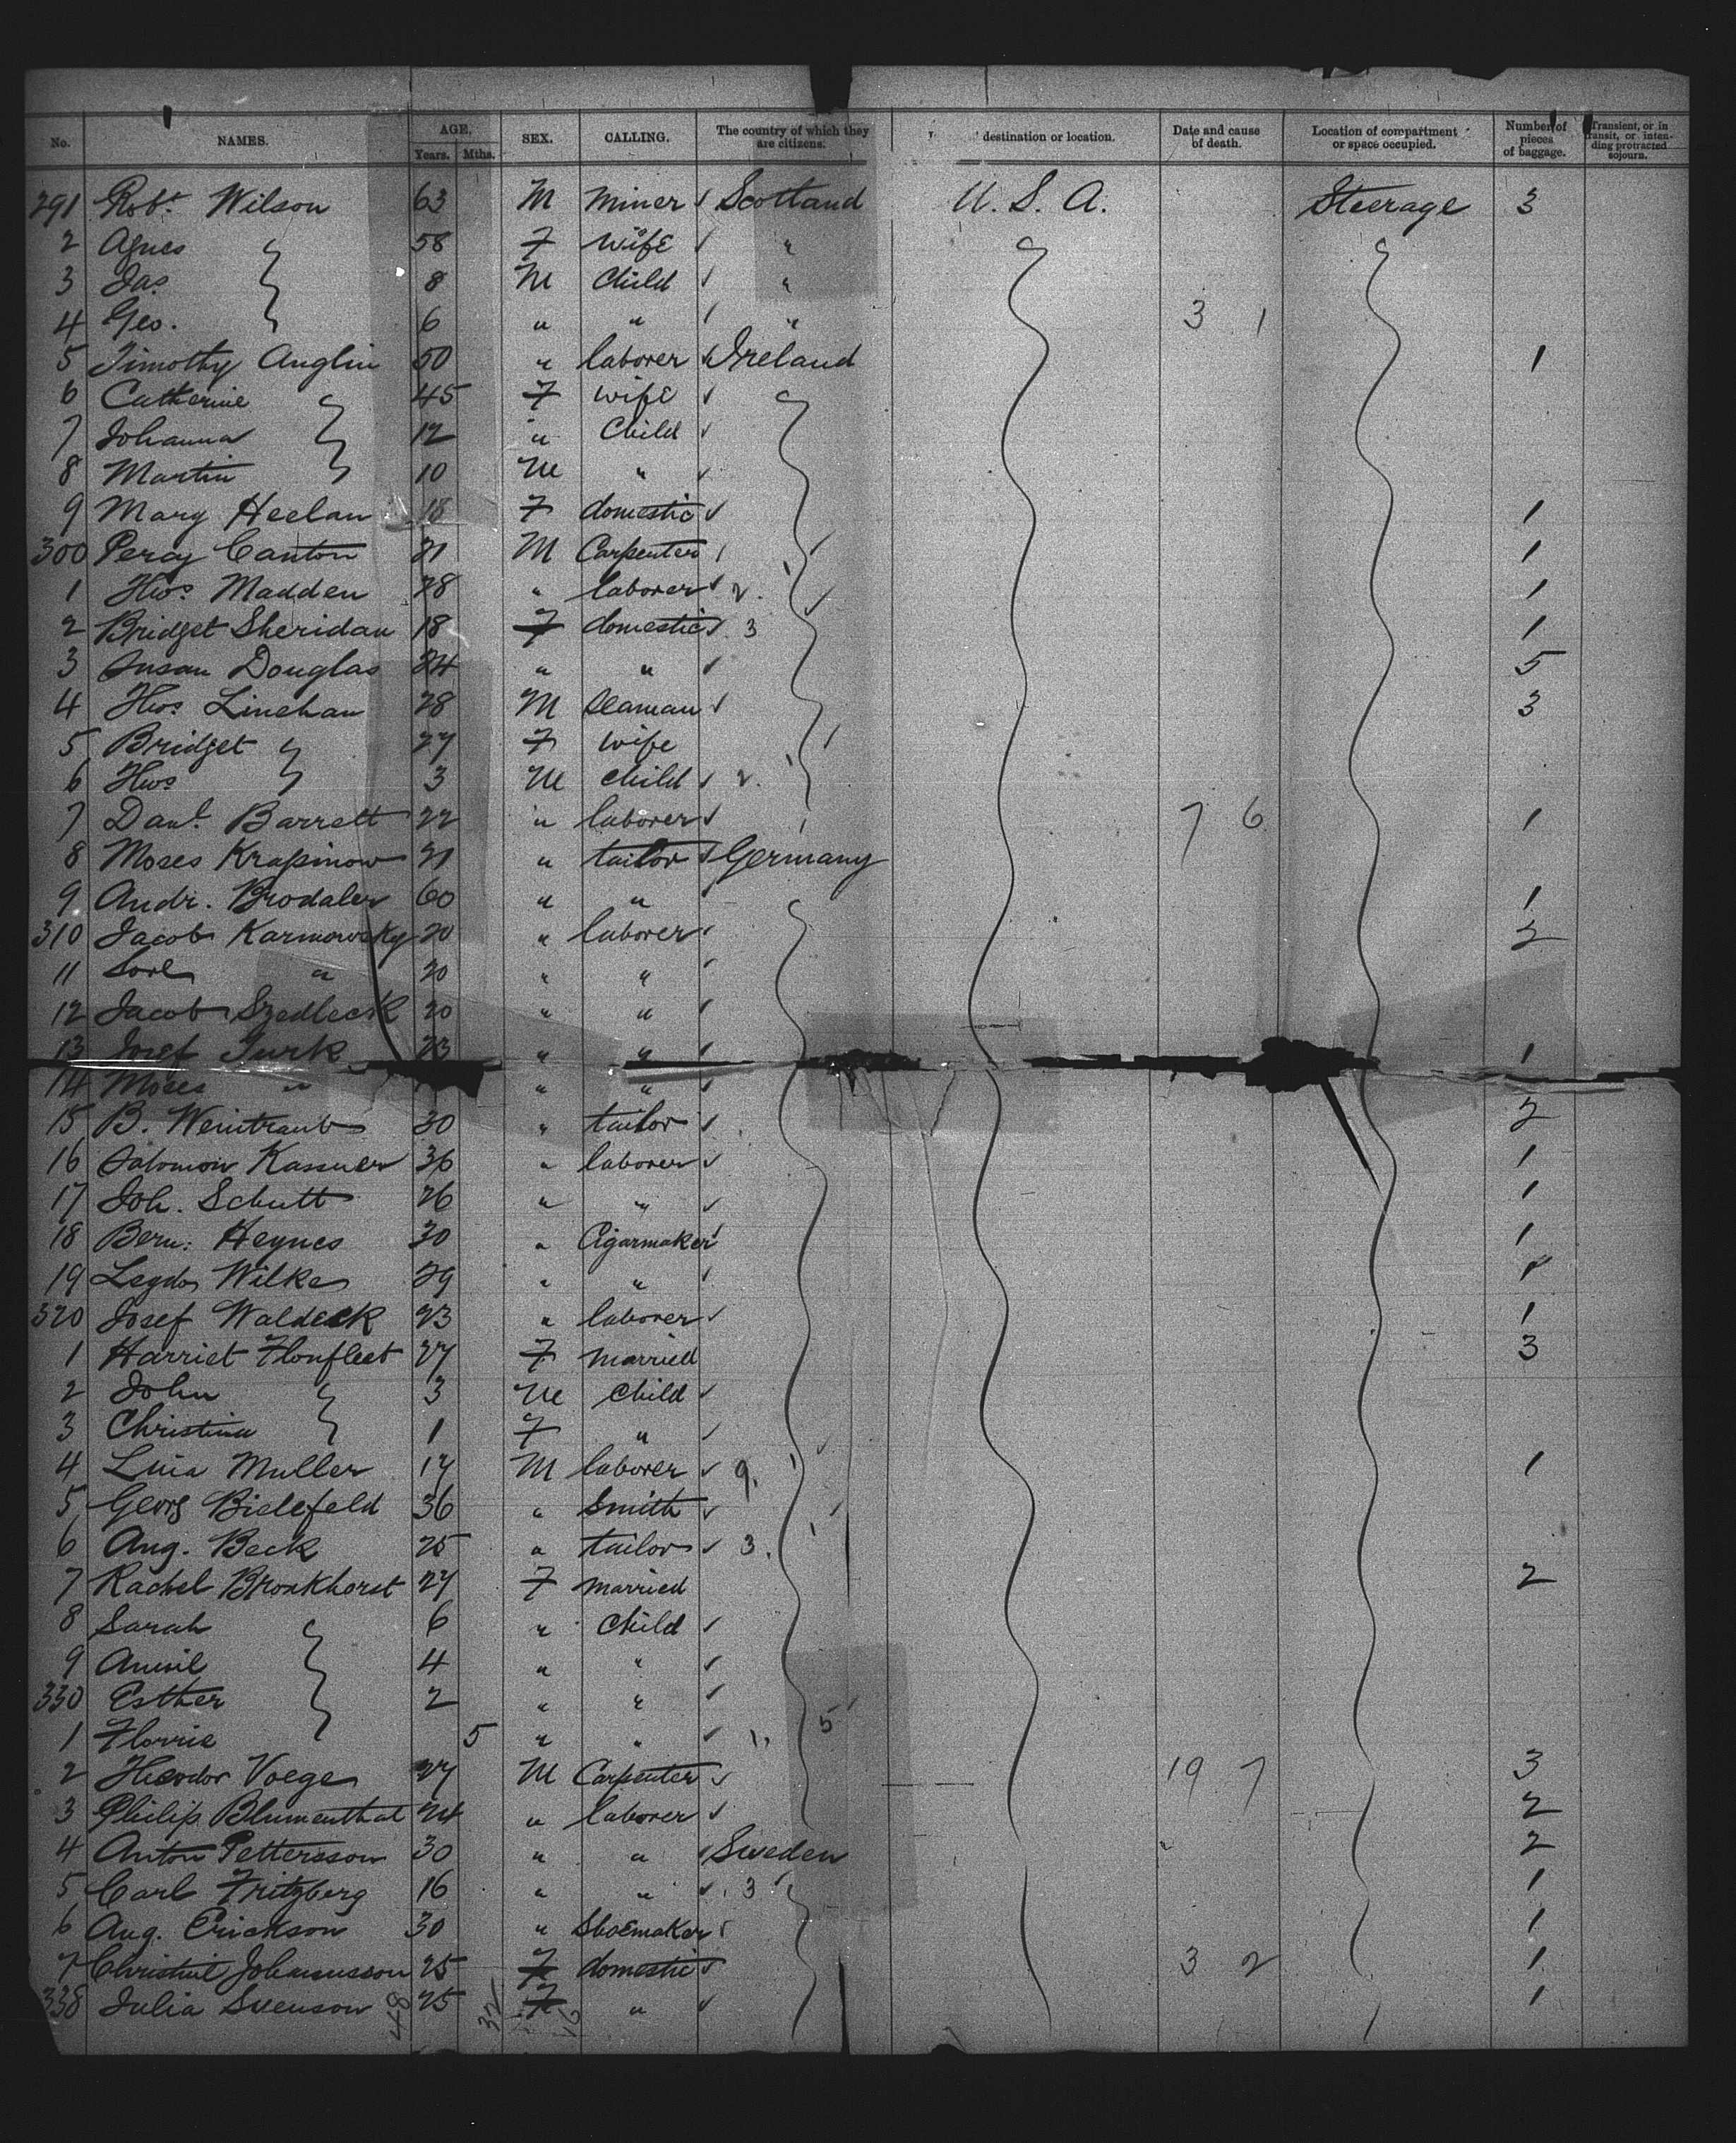 No. NAMES. AGE. Years. Mths. SEX. CALLING. The country of which they are citizens. destination or location. Date and cause of death. Location of compartment or space occupied. Number of pieces of baggage. Transient, or in transit, or intending protracted sojourn.
291 Robt Wilson 63 M Miner Scotland U. S. A. Steerage 3
2 Agnes 58 F Wife "
3 Jas 8 M Child "
4 Geo. 6 " " " 3 1
5 Timothy Anglin 50 " laborer Ireland 1
6 Catherine 45 F Wife
7 Johanna 12 " Child
8 Martin 10 M "
9 Mary Heelan 18 F domestic 1
300 Percy Canton 21 M Carpenter 1
1 Thos Madden 28 " laborer 2. 1
2 Bridget Sheridan 18 F domestic 3 1
3 Susan Douglas 24 " " 5
4 Thos Linehan 28 M Seaman 3
5 Bridget 27 F Wife
6 Thos 3 M child 2.
7 Danl. Barrett 22 " laborer 7 6 1
8 Moses 21 " tailor Germany
9 Andr. Brodaler 60 " " 1
310 Jacob Karmowsky 20 " laborer 2
11 " 20 " "
12 Jacob Szedleck 20 " "
13 Josef Turk 23 " " 1
14 Moses " " "
15 B. Weintraub 30 " tailor 2
16 Salomon Kassner 36 " laborer 1
17 Joh. Schutt 26 " " 1
18 Bern: Heynes 30 " Cigarmaker 1
19 Wilke 29 " " 1
320 Josef Waldeck 23 " laborer 1
1 Harriet Flonfleet 27 F Married 3
2 John 3 M Child
3 Christina 1 F "
4 Lina Muller 17 M laborer 9. 1
5 Georg Bielefeld 36 " Smith
6 Aug. Beck 25 " tailor 3.
7 Rachel Bronkhorst 27 F Married 2
8 Sarah 6 " Child
9 4 " "
330 Esther 2 " "
1 Florrie 5 " " 1, 5
2 Theodor Voege 27 M Carpenter 19 7 3
3 Philip Blumenthal 24 " laborer 2
4 Anton Pettersson 30 " " Sweden 2
5 Carl Fritzberg 16 " " 3 1
6 Aug. Erickson 30 " Shoemaker 1
7 Christine Johannsson 25 F domestic 3 2 1
338 Julia Svenson 25 F " 1
48 32 16